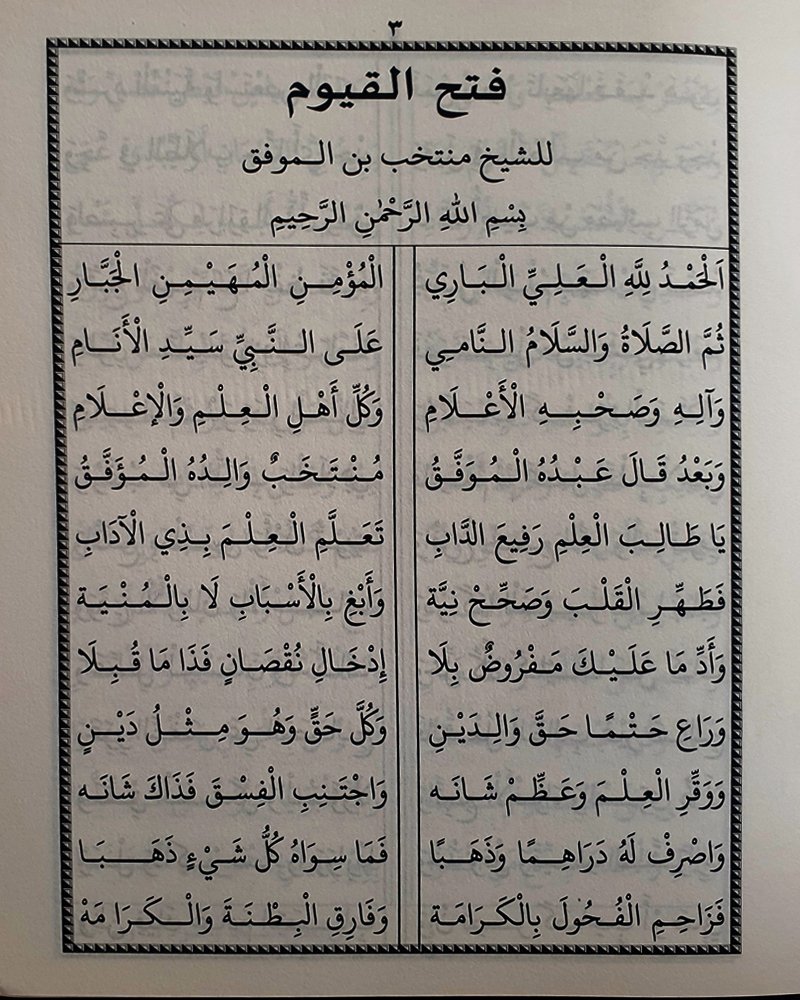 ٣
فتح القيوم
للشيخ منتخب بن الموفق
بِسْمِ اللهِ الرَّحْمٰنِ الرَّحِيمِ
اَلْحَمْدُ لِلَّهِ الْعَلِيِّ الْبَارِي الْمُؤْمِنِ الْمُهَيْمِنِ الْجَبَّارِ
ثُمَّ الصَّلَاةُ وَالسَّلَامُ النَّامِي عَلَى النَّبِيِّ سَيِّدِ الْأَنَامِ
وَآلِهِ وَصَحْبِهِ الْأَعْلَامِ وَكُلِّ أَهْلِ الْعِلْمِ وَالْإِعْلَامِ
وَبَعْدُ قَالَ عَبْدُهُ الْمُوَفَّقُ مُنْتَخَبٌ وَالِدُهُ الْمُؤَفَّقُ
يَا طَالِبَ الْعِلْمِ رَفِيعَ الدَّابِ تَعَلَّمِ الْعِلْمَ بِذِي الْآدَابِ
فَطَهِّرِ الْقَلْبَ وَصَحِّحْ نِيَّة وَأَبْغِ بِالْأَسْبَابِ لَا بِالْمُنْيَة
وَأَدِّ مَا عَلَيْكَ مَفْرُوضٌ بِلَا إِدْخَالِ نُقْصَانٍ فَذَا مَا قُبِلَا
وَرَاعِ حَتْمًا حَقَّ وَالِدَيْنِ وَكُلَّ حَقٍّ وَهُوَ مِثْلُ دَيْنٍ
وَوَقِّرِ الْعِلْمَ وَعَظِّمْ شَانَه وَاجْتَنِبِ الْفِسْقَ فَذَاكَ شَانَه
وَاصْرِفْ لَهُ دَرَاهِمًا وَذَهَبًا فَمَا سِوَاهُ كُلُّ شَيْءٍ ذَهَبَا
فَزَاحِمِ الْفُحُولَ بِالْكَرَامَة وَفَارِقِ الْبِطْنَةَ وَالْكَرَا مَهْ